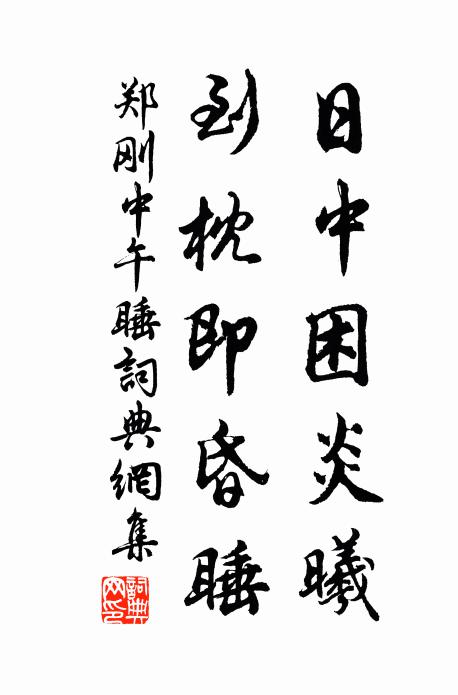 日中困炎曦
到枕即昏睡
郑刚中午睡詞典網集
詞典网印